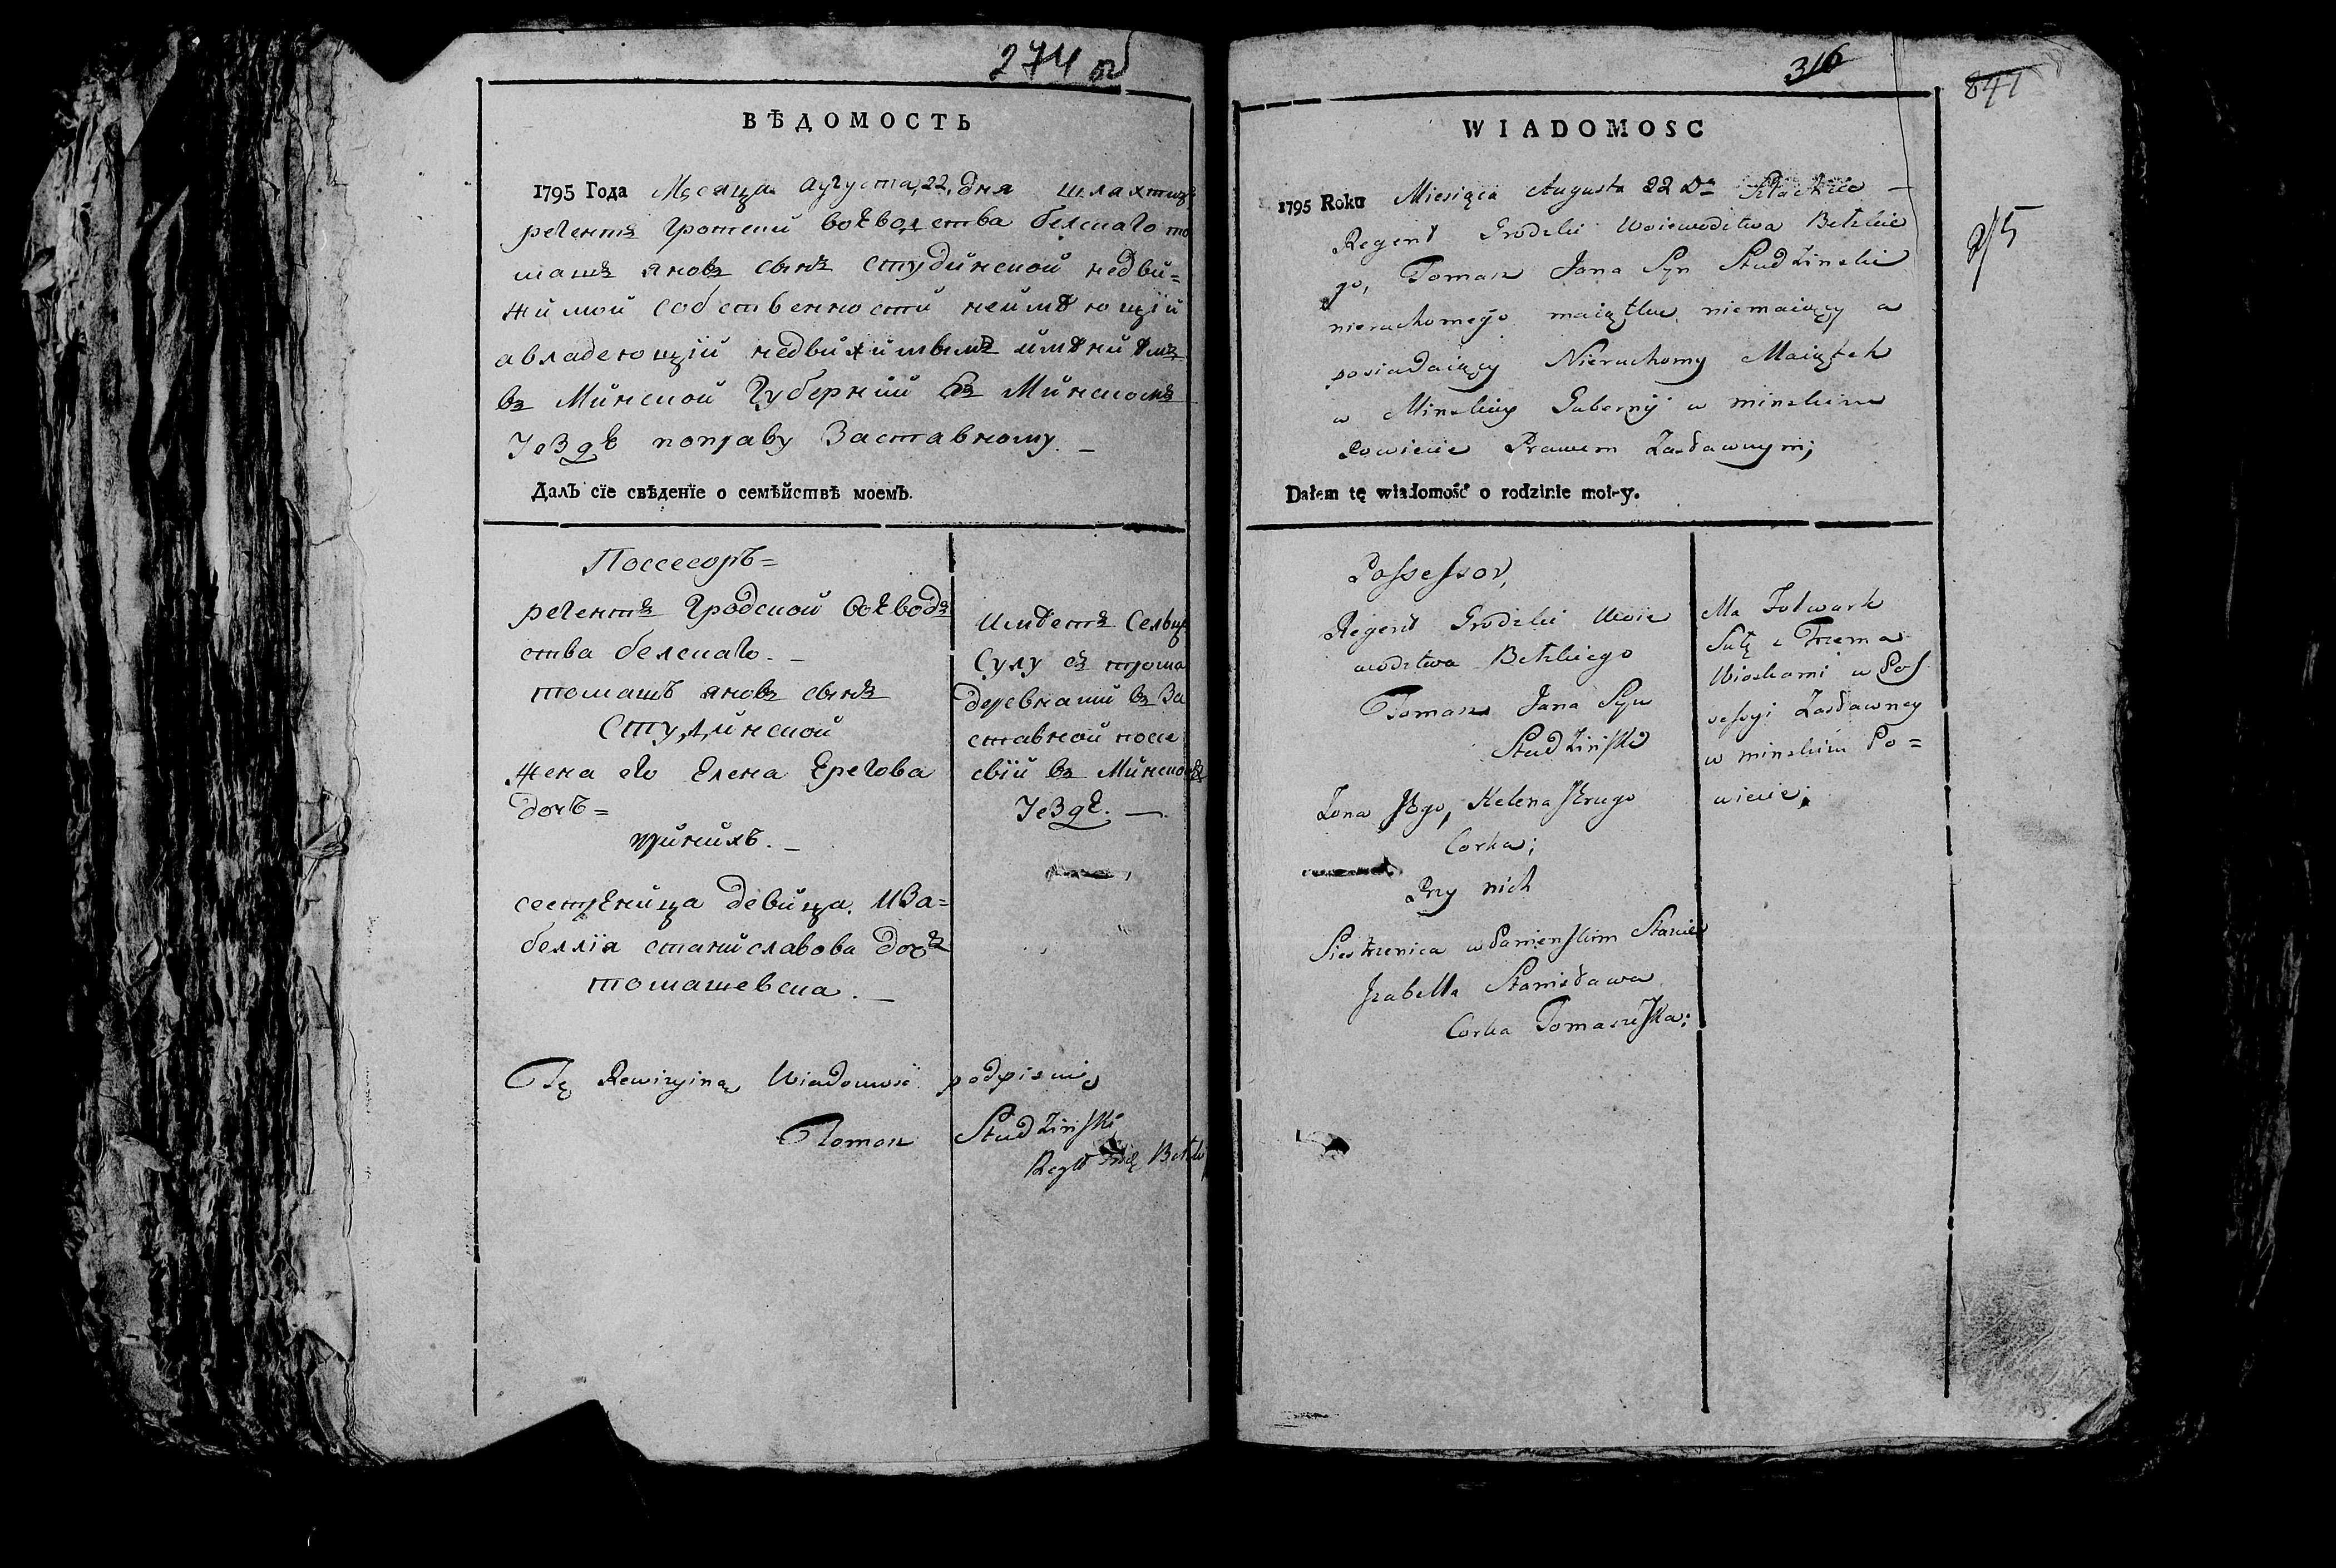 274 об
ВѢДОМОСТЬ
1795 Года Мѣсяца августа, 22, дня шляхтич
регентъ гротский воеводства белскаго то
машъ яновъ сынъ студинской недви=
жимой собственности неимѣющїй
авладеющїй недвижимымъ имѣниѣмъ
въ Минской Губерний въ Минскомъ
уезде поправу Заставному. —
Далъ сїе свѣденїе о семѣйствѣ моемъ.
Поссесоръ=
регентъ гродской воеводъ
ства белскаго. —
томашъ яновъ сынъ
Студинской
жена его Елена Ерегова
дочь=
приних. —
сестреница девица. Иза=
беллїя станиславова дочъ
томашевска. —
имѣетъ Сельцо
Сулу съ трома
деревнами въ за
ставной посе
свїи въ Минскомъ
уезде. —
Tę Rewizyiną Wiadomość podpisuię
Tomasz Studzinski
316
847
WIADOMOSC
1795 Roku Miesiąca Augusta 22 Da Szlachcic —
Regent Grodzki Woiewodztwa Bełzkie
go, Tomasz Jana Syn Studzinski
nieruchomego maiątku niemaiący a
posiadaiący Nieruchomy Maiątek
w Minskiey Gubernij w minskim
Powiecie Prawem Zastawnym;
Dałem tę wiadomość o rodzinie moiey.
Possessor,
Regent Grodzki Woie
wodztwa Bełzkiego
Tomasz Jana Syn
Studzinski
Zona Jego, Helena
Corka;
Przy nich
Siestrzenica w Panienskim Stanie
Izabella Stanisława
Corka Tomaszeska;
Ma Folwark
Sułę z Trzema
Wioskami w Pos
sessyi Zastawney
w minskim Po=
wiecie;